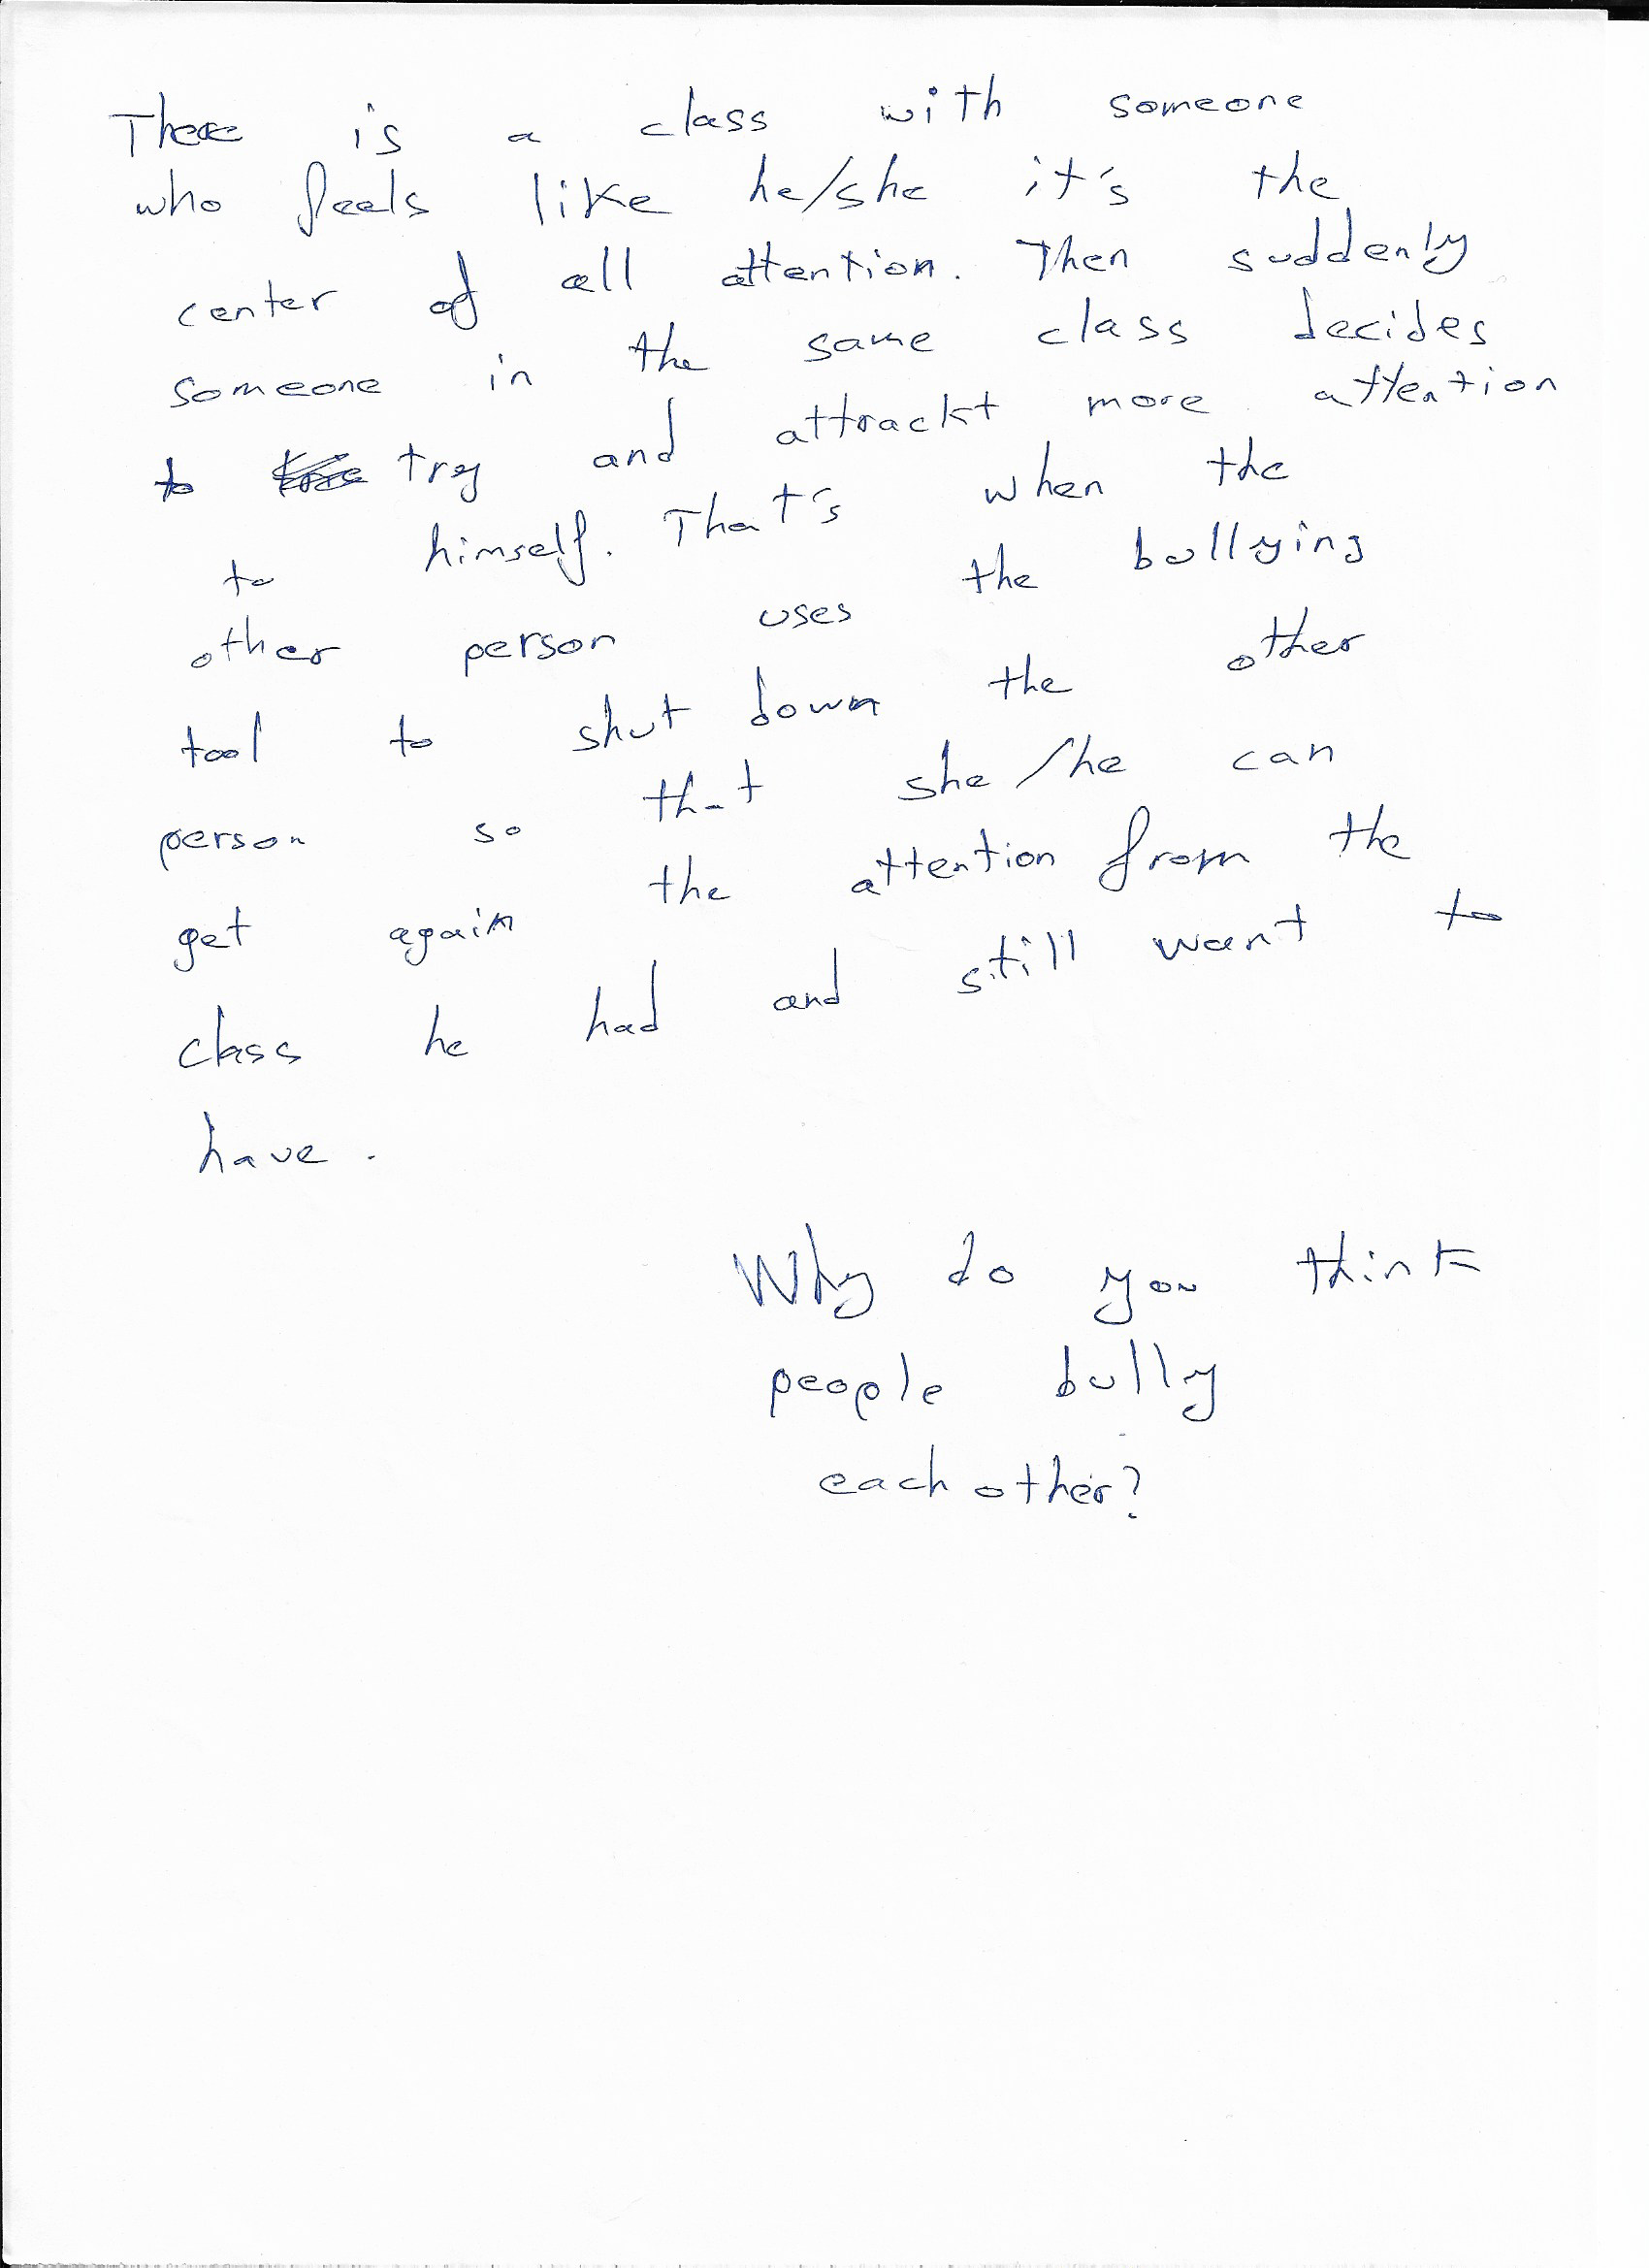 There is a class with someone
who feels like he/she it's the
center of all attention. Then suddenly
someone in the same class decides
to try and attrackt more attention
to himself. That's when the
other person uses the bullying
tool to shut down the other
person so that she/he can
get again the attention from the
class he had and still want to
have.
Why do you think
people bully
each other?